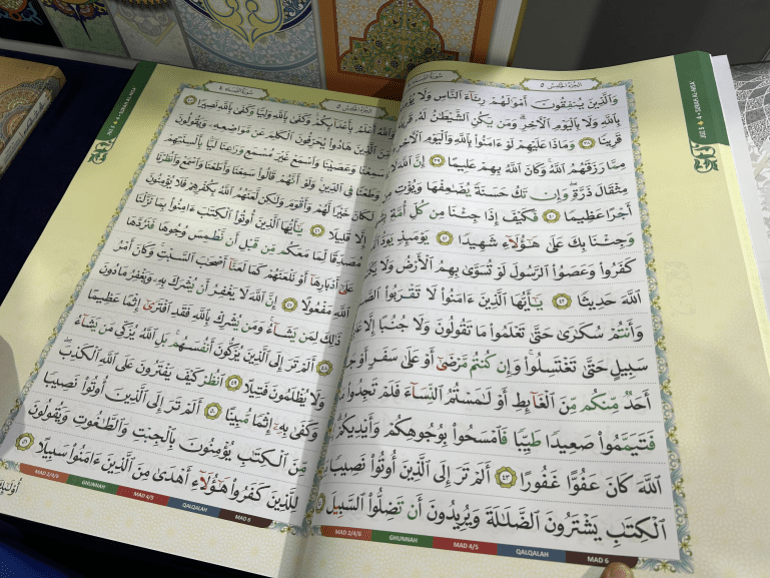 الجزء الخامس ٥
سورة النساء ٤
JUZ 5 ◆ 4 • SURAH AL-NISA'
وَٱلَّذِينَ يُنفِقُونَ أَمْوَٰلَهُمْ رِئَآءَ ٱلنَّاسِ وَلَا
بِٱللَّهِ وَلَا بِٱلْيَوْمِ ٱلْءَاخِرِ ۗ وَمَن يَكُنِ ٱلشَّيْطَٰنُ لَهُۥ
قَرِينًا ٣٨ وَمَاذَا عَلَيْهِمْ لَوْ ءَامَنُوا۟ بِٱللَّهِ وَٱلْيَوْمِ ٱلْءَاخِرِ
مِمَّا رَزَقَهُمُ ٱللَّهُ ۚ وَكَانَ ٱللَّهُ بِهِمْ عَلِيمًا ٣٩ إِنَّ ٱللَّهَ
مِثْقَالَ ذَرَّةٍ ۖ وَإِن تَكُ حَسَنَةً يُضَٰعِفْهَا وَيُؤْتِ
أَجْرًا عَظِيمًا ٤٠ فَكَيْفَ إِذَا جِئْنَا مِن كُلِّ أُمَّةٍۭ
وَجِئْنَا بِكَ عَلَىٰ هَٰٓؤُلَآءِ شَهِيدًا ٤١ يَوْمَئِذٍ يَوَدُّ
كَفَرُوا۟ وَعَصَوُا۟ ٱلرَّسُولَ لَوْ تُسَوَّىٰ بِهِمُ ٱلْأَرْضُ وَلَا
ٱللَّهَ حَدِيثًا ٤٢ يَٰٓأَيُّهَا ٱلَّذِينَ ءَامَنُوا۟ لَا تَقْرَبُوا۟
وَأَنتُمْ سُكَٰرَىٰ حَتَّىٰ تَعْلَمُوا۟ مَا تَقُولُونَ وَلَا جُنُبًا إِلَّا
سَبِيلٍ حَتَّىٰ تَغْتَسِلُوا۟ ۚ وَإِن كُنتُم مَّرْضَىٰٓ أَوْ عَلَىٰ سَفَرٍ أَوْ
أَحَدٌ مِّنكُم مِّنَ ٱلْغَآئِطِ أَوْ لَٰمَسْتُمُ ٱلنِّسَآءَ فَلَمْ تَجِدُوا۟
فَتَيَمَّمُوا۟ صَعِيدًا طَيِّبًا فَٱمْسَحُوا۟ بِوُجُوهِكُمْ وَأَيْدِيكُمْ ۗ
ٱللَّهَ كَانَ عَفُوًّا غَفُورًا ٤٣ أَلَمْ تَرَ إِلَى ٱلَّذِينَ أُوتُوا۟ نَصِيبًا
ٱلْكِتَٰبِ يَشْتَرُونَ ٱلضَّلَٰلَةَ وَيُرِيدُونَ أَن تَضِلُّوا۟ ٱلسَّبِيلَ
MAD 2/4/6 GHUNNAH MAD 4/5 QALQALAH MAD 6
الجزء الخامس ٥
سورة النساء ٤
أَعْلَمُ بِأَعْدَآئِكُمْ ۚ وَكَفَىٰ بِٱللَّهِ وَلِيًّا وَكَفَىٰ بِٱللَّهِ نَصِيرًا ٤٥
مِّنَ ٱلَّذِينَ هَادُوا۟ يُحَرِّفُونَ ٱلْكَلِمَ عَن مَّوَاضِعِهِۦ وَيَقُولُونَ
سَمِعْنَا وَعَصَيْنَا وَٱسْمَعْ غَيْرَ مُسْمَعٍ وَرَٰعِنَا لَيًّۢا بِأَلْسِنَتِهِمْ
وَطَعْنًا فِى ٱلدِّينِ ۚ وَلَوْ أَنَّهُمْ قَالُوا۟ سَمِعْنَا وَأَطَعْنَا وَٱسْمَعْ وَٱنظُرْنَا
لَكَانَ خَيْرًا لَّهُمْ وَأَقْوَمَ وَلَٰكِن لَّعَنَهُمُ ٱللَّهُ بِكُفْرِهِمْ فَلَا يُؤْمِنُونَ
إِلَّا قَلِيلًا ٤٦ يَٰٓأَيُّهَا ٱلَّذِينَ أُوتُوا۟ ٱلْكِتَٰبَ ءَامِنُوا۟ بِمَا نَزَّلْنَا
مُصَدِّقًا لِّمَا مَعَكُم مِّن قَبْلِ أَن نَّطْمِسَ وُجُوهًا فَنَرُدَّهَا
عَلَىٰٓ أَدْبَارِهَآ أَوْ نَلْعَنَهُمْ كَمَا لَعَنَّآ أَصْحَٰبَ ٱلسَّبْتِ ۚ وَكَانَ أَمْرُ
ٱللَّهِ مَفْعُولًا ٤٧ إِنَّ ٱللَّهَ لَا يَغْفِرُ أَن يُشْرَكَ بِهِۦ وَيَغْفِرُ مَا دُونَ
ذَٰلِكَ لِمَن يَشَآءُ ۚ وَمَن يُشْرِكْ بِٱللَّهِ فَقَدِ ٱفْتَرَىٰٓ إِثْمًا عَظِيمًا
٤٨ أَلَمْ تَرَ إِلَى ٱلَّذِينَ يُزَكُّونَ أَنفُسَهُم ۚ بَلِ ٱللَّهُ يُزَكِّى مَن يَشَآءُ
وَلَا يُظْلَمُونَ فَتِيلًا ٤٩ ٱنظُرْ كَيْفَ يَفْتَرُونَ عَلَى ٱللَّهِ ٱلْكَذِبَ ۖ
وَكَفَىٰ بِهِۦٓ إِثْمًا مُّبِينًا ٥٠ أَلَمْ تَرَ إِلَى ٱلَّذِينَ أُوتُوا۟ نَصِيبًا
مِّنَ ٱلْكِتَٰبِ يُؤْمِنُونَ بِٱلْجِبْتِ وَٱلطَّٰغُوتِ وَيَقُولُونَ
لِلَّذِينَ كَفَرُوا۟ هَٰٓؤُلَآءِ أَهْدَىٰ مِنَ ٱلَّذِينَ ءَامَنُوا۟ سَبِيلًا ٥١
MAD 2/4/6 GHUNNAH MAD 4/5 QALQALAH MAD 6